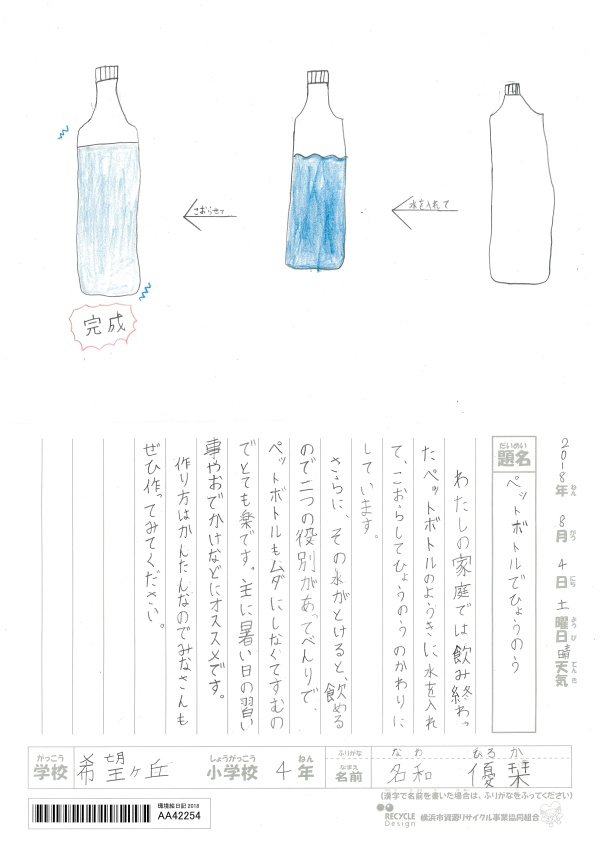 水を入れて
こおらせて
完成
2018年 8月 4日 土曜日 晴天気
ねん がつ にち ようび てんき
だいめい
題名
ペットボトルでひょうのう
わたしの家庭では飲み終わっ
たペットボトルのようきに水を入れ
て、こおらしてひょうのうのかわりに
しています。
さらに、その水がとけると、飲める
ので二つの役別があってべんりで、
ペットボトルもムダにしなくてすむの
でとても楽です。主に暑い日の習い
事やおでかけなどにオススメです。
作り方はかんたんなのでみなさんも
ぜひ作ってみてください。
がっこう
学校
希望ヶ丘
しょうがっこう
小学校
4
ねん
年
ふりがな
なまえ
名前
なわ ひろか
名和 優栞
(漢字で名前を書いた場合は、ふりがなをふってください)
環境絵日記 2018
AA42254
RECYCLE
Design
横浜市資源リサイクル事業協同組合